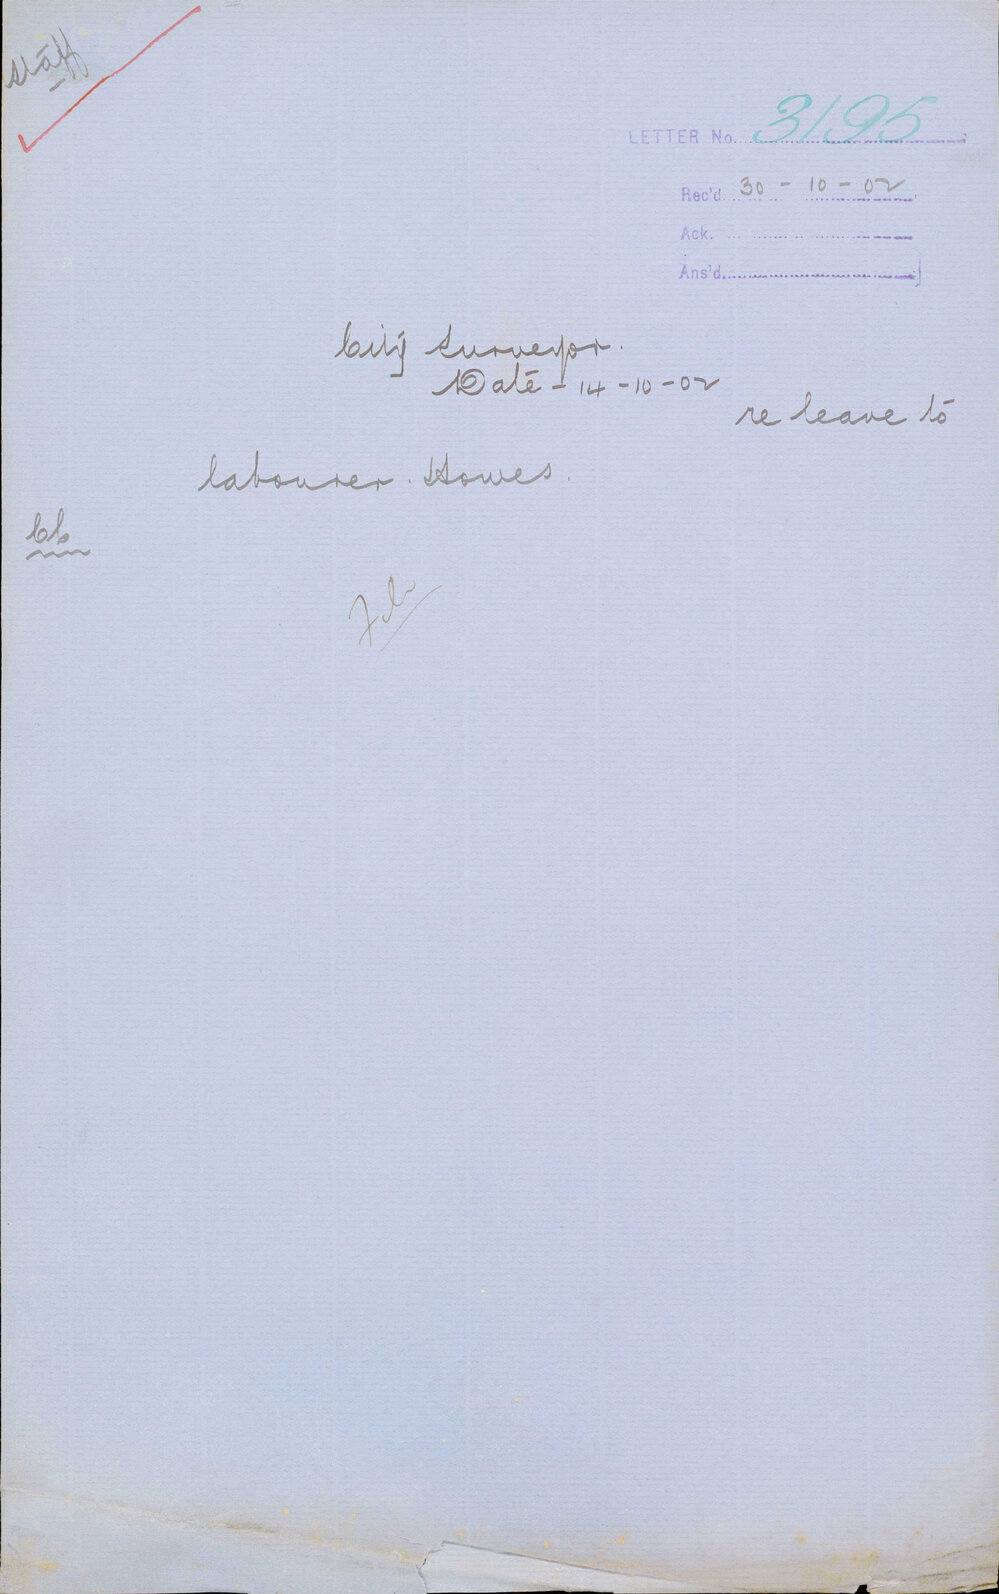 Staff
LETTER No. 3195
Rec'd 30-10-02
Ack.
Ans'd
City Surveyor.
Date - 14-10-02
re leave to
labourer Howes.
File